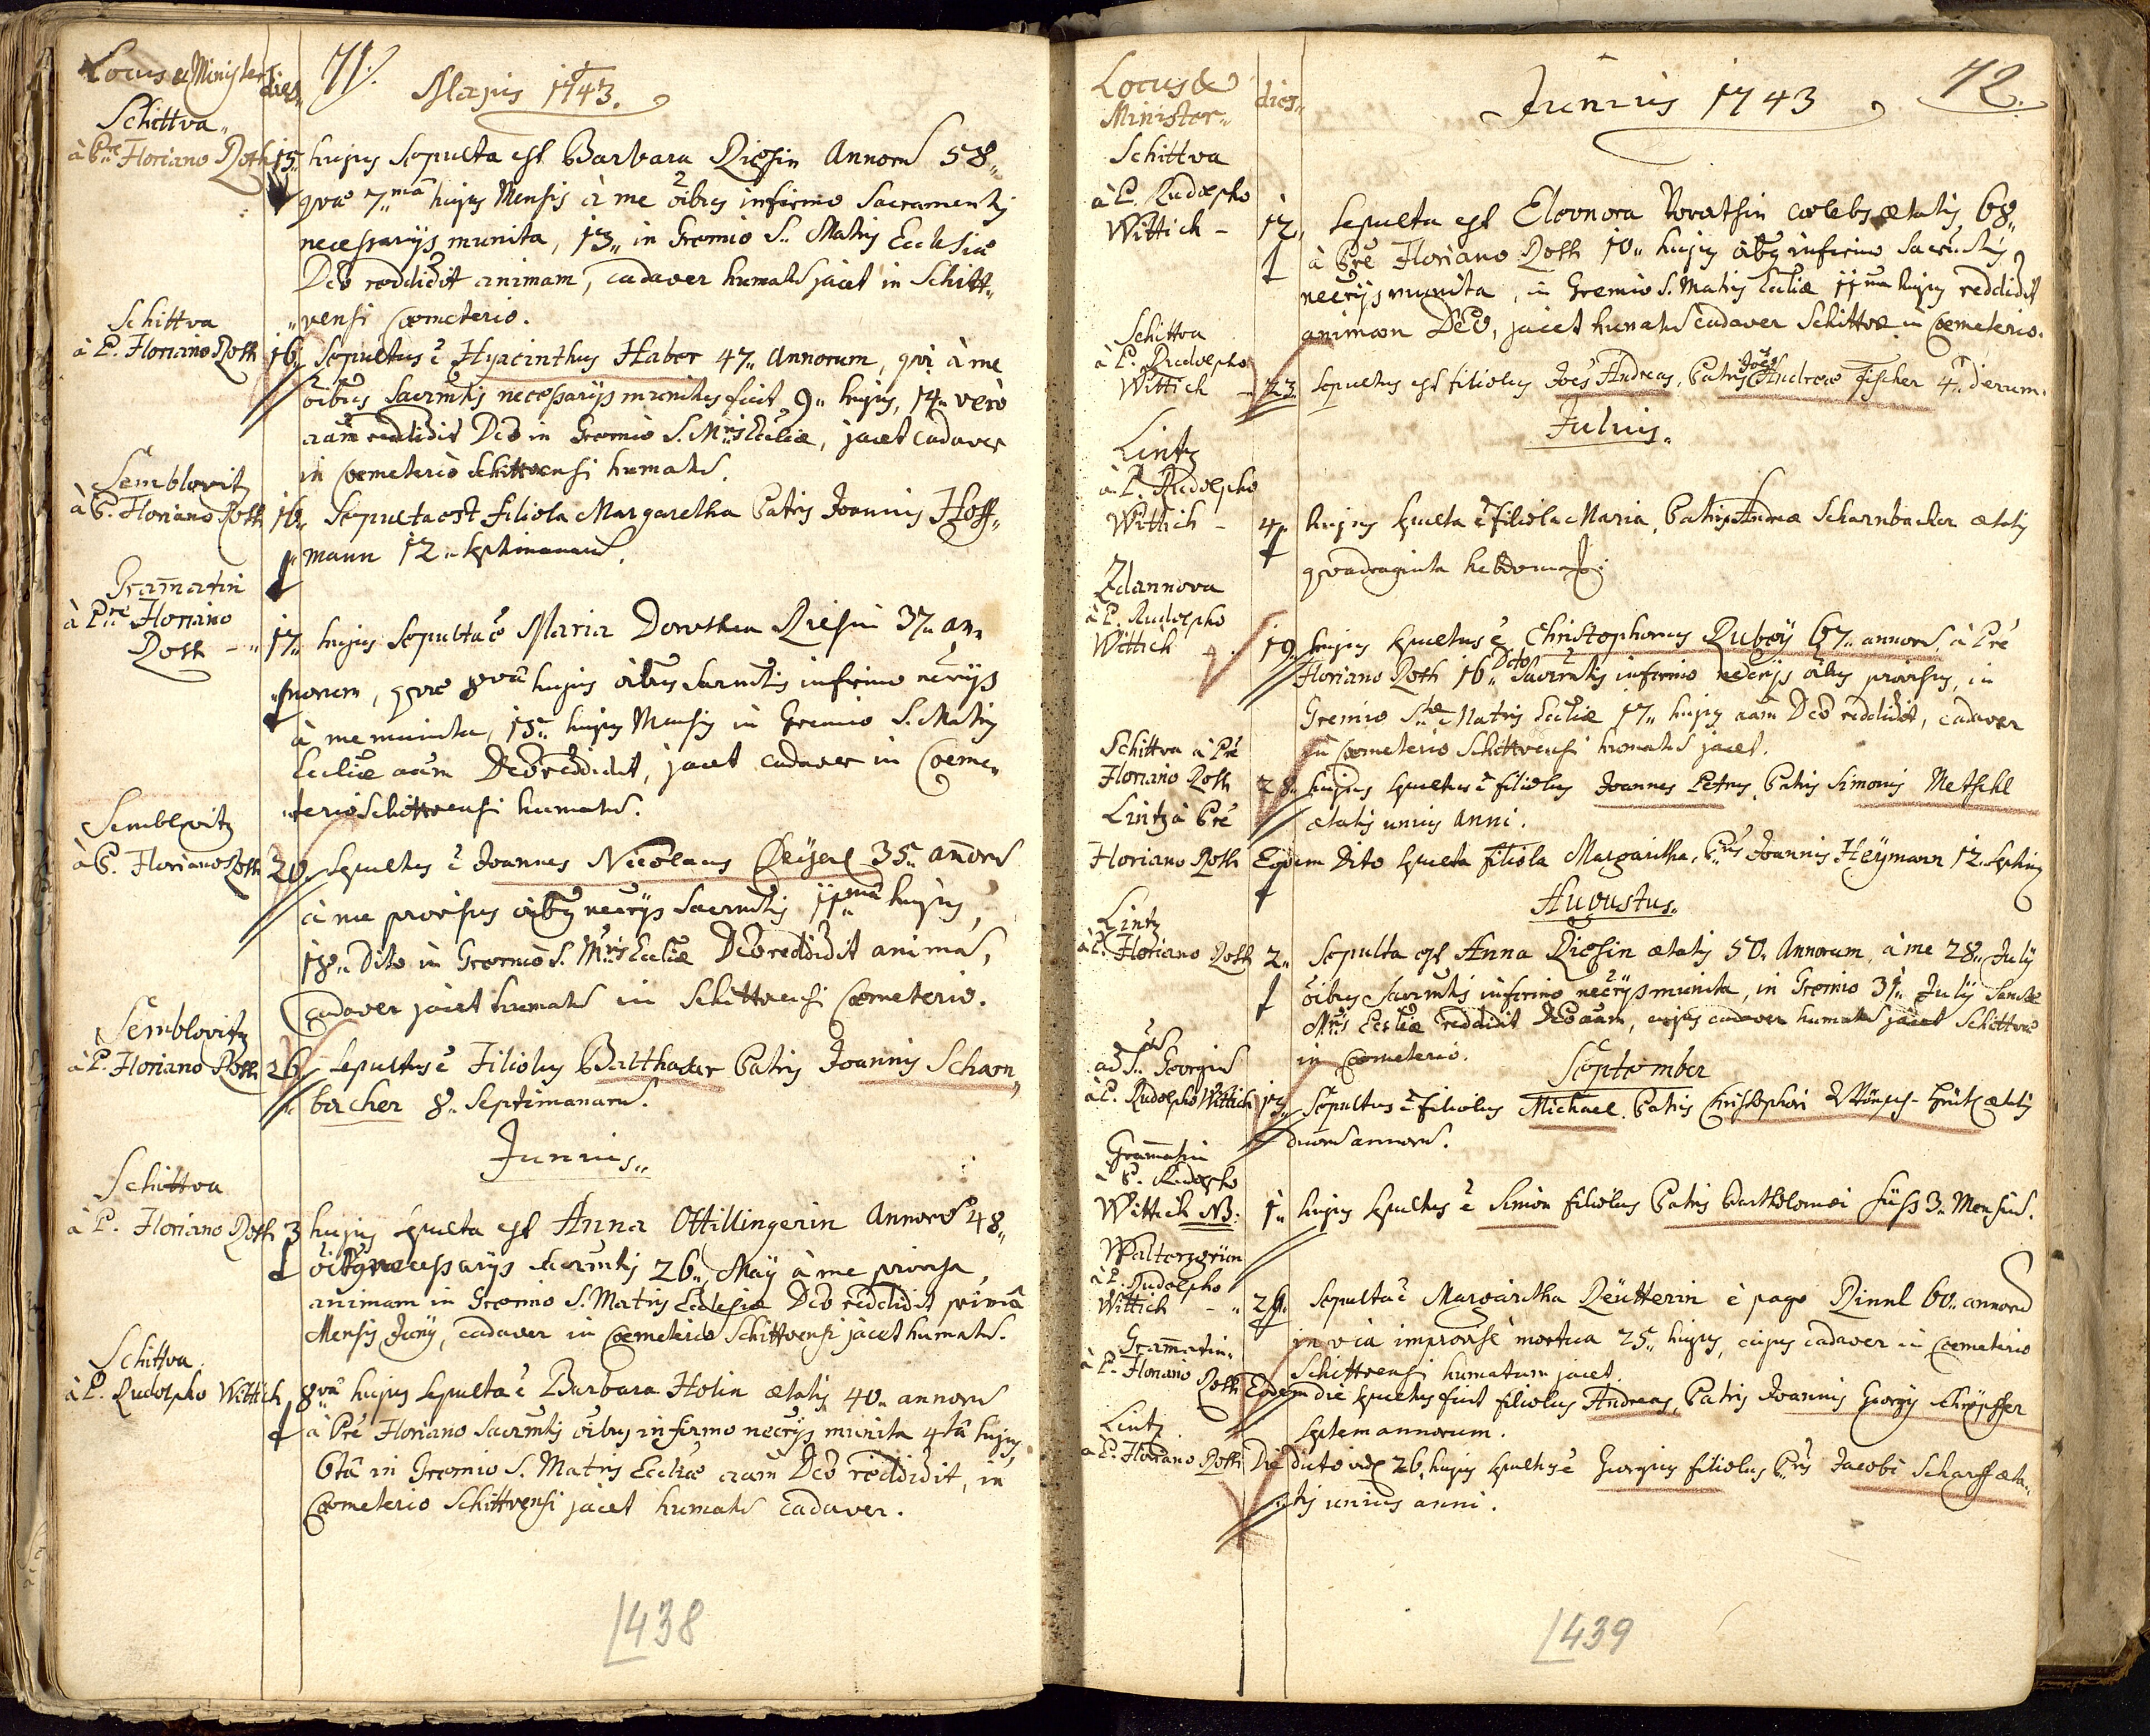 Locus & Minister
dies
71.
Majus 1743.
Schittva
à Pre Floriano Roth 15. hujus Sepulta est Barbara Riessin Annorũ 58.
quæ 7.mâ hujus Mensis à me õibus infirmo Sacramentis
necessarijs munita, 13. in Gremio S. Matris Ecclesiæ
Deo reddidit animam, cadaver humatũ jacet in Schitt„
„vensi Cœmeterio.
Schittva
à P. Floriano Roth 16. Sepultus ẽ Hyacinthus Haber 47. Annorum, qui à me
õibus Sacrmtis necessarijs munitus fuit 9. hujus, 14. verò
aãm reddidit Deo in Gremio S. Mris Eccliæ, jacet cadaver
in Cœmeterio Schittvensi humatũ.
Semblovitz
à P. Floriano Roth 16. Sepulta est filiola Margaretha Patris Joannis Hoff„
„mann 12. septimanarũ.
Gram̃atin
à Pre Floriano
Roth 17. hujus Sepulta ẽ Maria Dorothea Riesin 37. an„
„norum, quæ 8va hujus õibus Sacrmtis infirmo neĉrijs
à me munita, 15. hujus Mensis in Gremio S. Matris
Eccliæ aãm Deo reddidit, jacet cadaver in Cœme„
„terio Schittvensi humatũ.
Semblovitz
à P. Floriano Roth 20. Sepultus ẽ Joannes Nicolaus 35. an̄orũ
à me provisus õibus neĉrijs Sacrmtis 11mâ hujus,
18. Dito in Gremio S. Mris Eccliæ Deo reddidit animã,
cadaver jacet humatũ in Schittvensi Cœmeterio.
Semblovitz
à P. Floriano Roth 26. Sepultus ẽ Filiolus Balthasar Patris Joannis Scharn„
bacher 8. Septimanarũ.
Junius.
Schittva
à P. Floriano Roth 3 hujus sepulta est Anna Ottillingerin Annorũ 48.
õibus necessarijs Sacrmtis 26. Maij à me provisa,
animam in Gremio S. Matris Ecclesiæ Deo reddidit primâ
Mensis Junij, cadaver in Cœmeterio Schittvensi jacet humatũ.
Schittva
à P. Rudolpho Wittich 8vâ hujus sepulta ẽ Barbara Holin ætatis 40. annorũ
à Pre Floriano Sacrmtis õibus infirmo neĉrijs munita 4tâ hujus,
6tâ in Gremio S. Matris Eccliæ aãm Deo reddidit, in
Cœmeterio Schittvensi jacet humatũ cadaver.
438
Locus &
Minister
dies
Junius 1743
72.
Schittva
à P. Rudolpho
Wittich 12. Sepulta est Eleonora cœlebs ætatis 68.
à Pre Floriano Roth 10. hujus õibus infirmo Sacrmtis
neĉrijs munita, in Gremio S. Matris Eccliæ 11ma hujus reddidit
animam Deo, jacet humatũ cadaver Schittvæ in Cœmeterio.
Schittva
à P. Rudolpho
Wittich 23. Sepultus est filiolus Joẽs Andreas, Patris Joẽs Andreæ Fischer 4. dierum.
Julius.
Lintz
à P. Rudolpho
Wittich 4. hujus sepulta ẽ filiola Maria, Patris Andreæ Scharnbacher ætatis
quadraginta hebdomad.
Zdannova
à P. Rudolpho
Wittich 19. hujus sepultus ẽ Christophorus Ruboij 67. annorũ, à Pre
Floriano Roth 16. Dito Sacrmtis infirmo neĉrijs õibus provisus, in
Gremio Stæ Matris Eccliæ 17. hujus aãm Deo reddidit, cadaver
in Cœmeterio Schittvensi humatũ jacet.
Schittva à Pre
Floriano Roth 28. hujus sepultus ẽ filiolus Joannes Petrus, Patris Simonis Metschl
ætatis unius anni.
Lintz à Pre
Floriano Roth Eodem Dito sepulta filiola Margaritha, Pris Joannis Heymann 12. septim
Augustus.
Lintz
à P. Floriano Roth 2. Sepulta est Anna Riesin ætatis 50. Annorum, à me 28. Julij
õibus Sacrmtis infirmo neĉrijs munita, in Gremio 31. Julij Sanctæ
Mris Eccliæ reddidit Deo aãm, cujus cadaver humatũ jacet Schittvæ
in Cœmeterio.
September
ad S. Georgiũ
à P. Rudolpho Wittich 15. Sepultus ẽ filiolus Michael, Patris Christophori ætatis
duorũ annorũ.
Gram̃atin
à P. Rudolpho
Wittich NB. 1. hujus sepultus ẽ Simon filiolus Patris Bartholomæi Süss 3. Mensiũ.
Waltersgrün
à P. Rudolpho
Wittich 26. Sepulta ẽ Margaritha Reütterin è pago Rinnl 60. annorũ
in via improvisè mortua 25. hujus, cujus cadaver in Cœmeterio
Schittvensi humatum jacet.
Gram̃atin
à P. Floriano Roth Eodem die sepultus fuit filiolus Andreas, Patris Joannis Georgij Schöpffer
septem annorum.
Lintz
à P. Floriano Roth Die dicto videl. 26. hujus sepultus ẽ Georgius filiolus Pris Jacobi Scharff æta„
„tis unius anni.
439